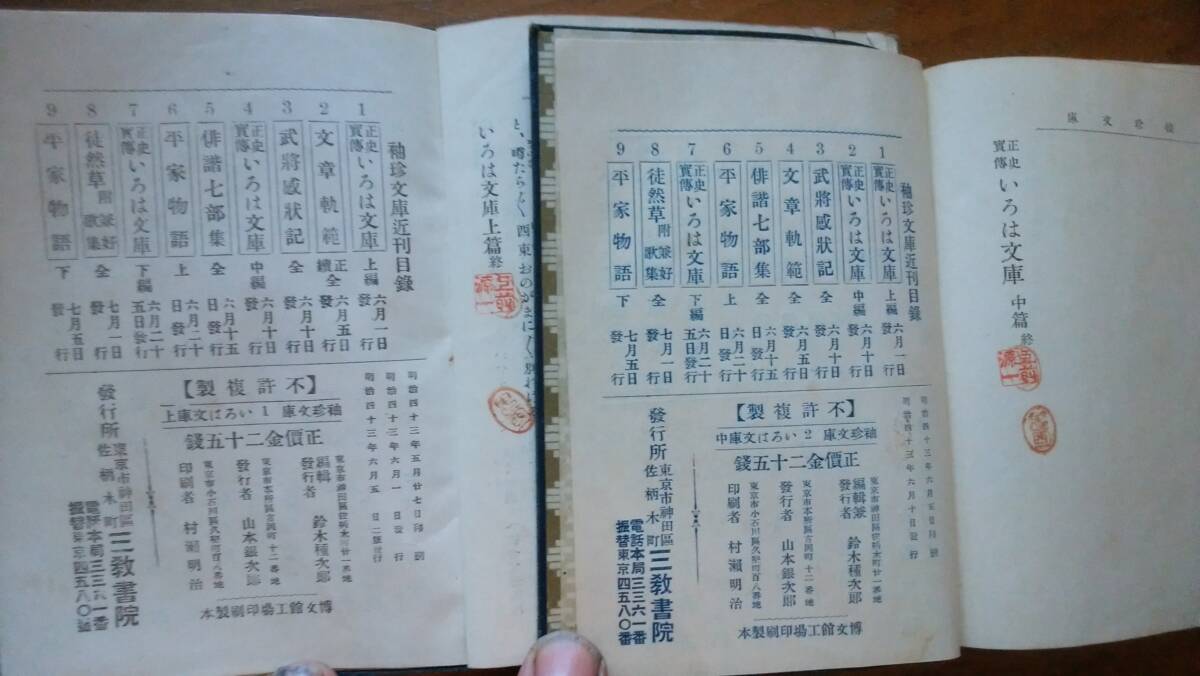 と、噂たら〴〵
いろは文庫上篇終
袖珍文庫近刊目錄
1 正史實傳 いろは文庫 上編 六月一日發行
2 文章軌範 正續全 六月五日發行
3 武將感狀記 全 六月十日發行
4 正史實傳 いろは文庫 中編 六月十日發行
5 俳諧七部集 全 六月十五日發行
6 平家物語 上 六月二十日發行
7 正史實傳 いろは文庫 下編 六月二十五日發行
8 徒然草 附兼好歌集 全 七月一日發行
9 平家物語 下 七月五日發行
明治四十三年五月廿七日印刷
明治四十三年六月一日發行
明治四十三年六月五日二版發行
【不許複製】
袖珍文庫 1 いろは文庫上
正價金二十五錢
編輯發行者 鈴木種次郎
發行者 山本銀次郎
東京市小石川區久堅町百八番地
印刷者 村瀨明治
發行所 東京市神田區佐柄木町 三敎書院
電話本局三三六一番
振替東京四五八〇番
博文館工場印刷製本
袖珍文庫
正史實傳 いろは文庫 中篇終
袖珍文庫近刊目錄
1 正史實傳 いろは文庫 上編 六月一日發行
2 正史實傳 いろは文庫 中編 六月十日發行
3 武將感狀記 全 六月十日發行
4 文章軌範 全 六月五日發行
5 俳諧七部集 全 六月十五日發行
6 平家物語 上 六月二十日發行
7 正史實傳 いろは文庫 下編 六月二十五日發行
8 徒然草 附兼好歌集 全 七月一日發行
9 平家物語 下 七月五日發行
明治四十三年六月五日印刷
明治四十三年六月十日發行
【不許複製】
袖珍文庫 2 いろは文庫中
正價金二十五錢
東京市神田區佐柄木町廿一番地
編輯兼發行者 鈴木種次郎
發行者 山本銀次郎
東京市小石川區久堅町百八番地
印刷者 村瀨明治
發行所 東京市神田區佐柄木町 三敎書院
電話本局三三六一番
振替東京四五八〇番
博文館工場印刷製本